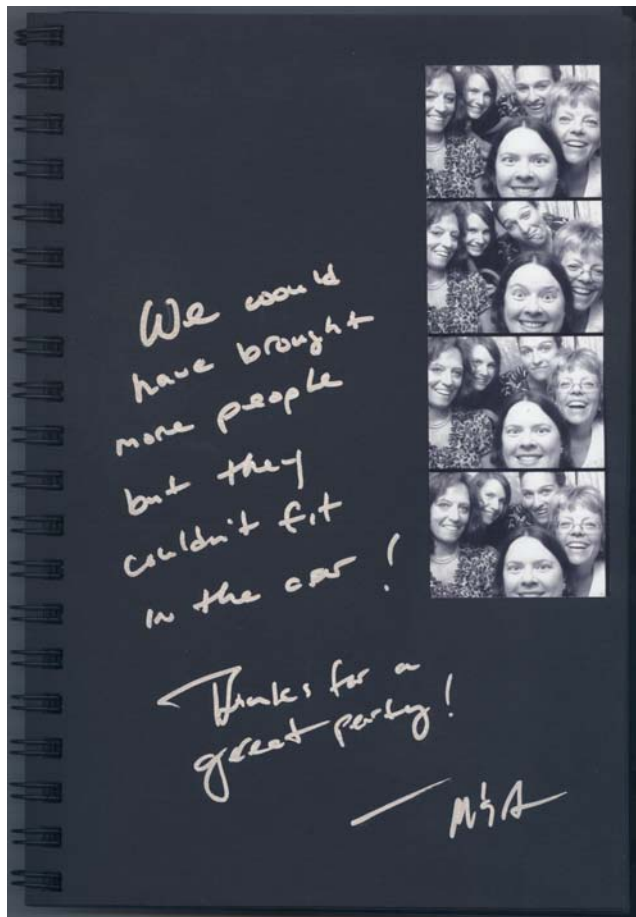 We would
have brought
more people
but they
couldn't fit
in the car!
Thanks for a
great party!
— M & A